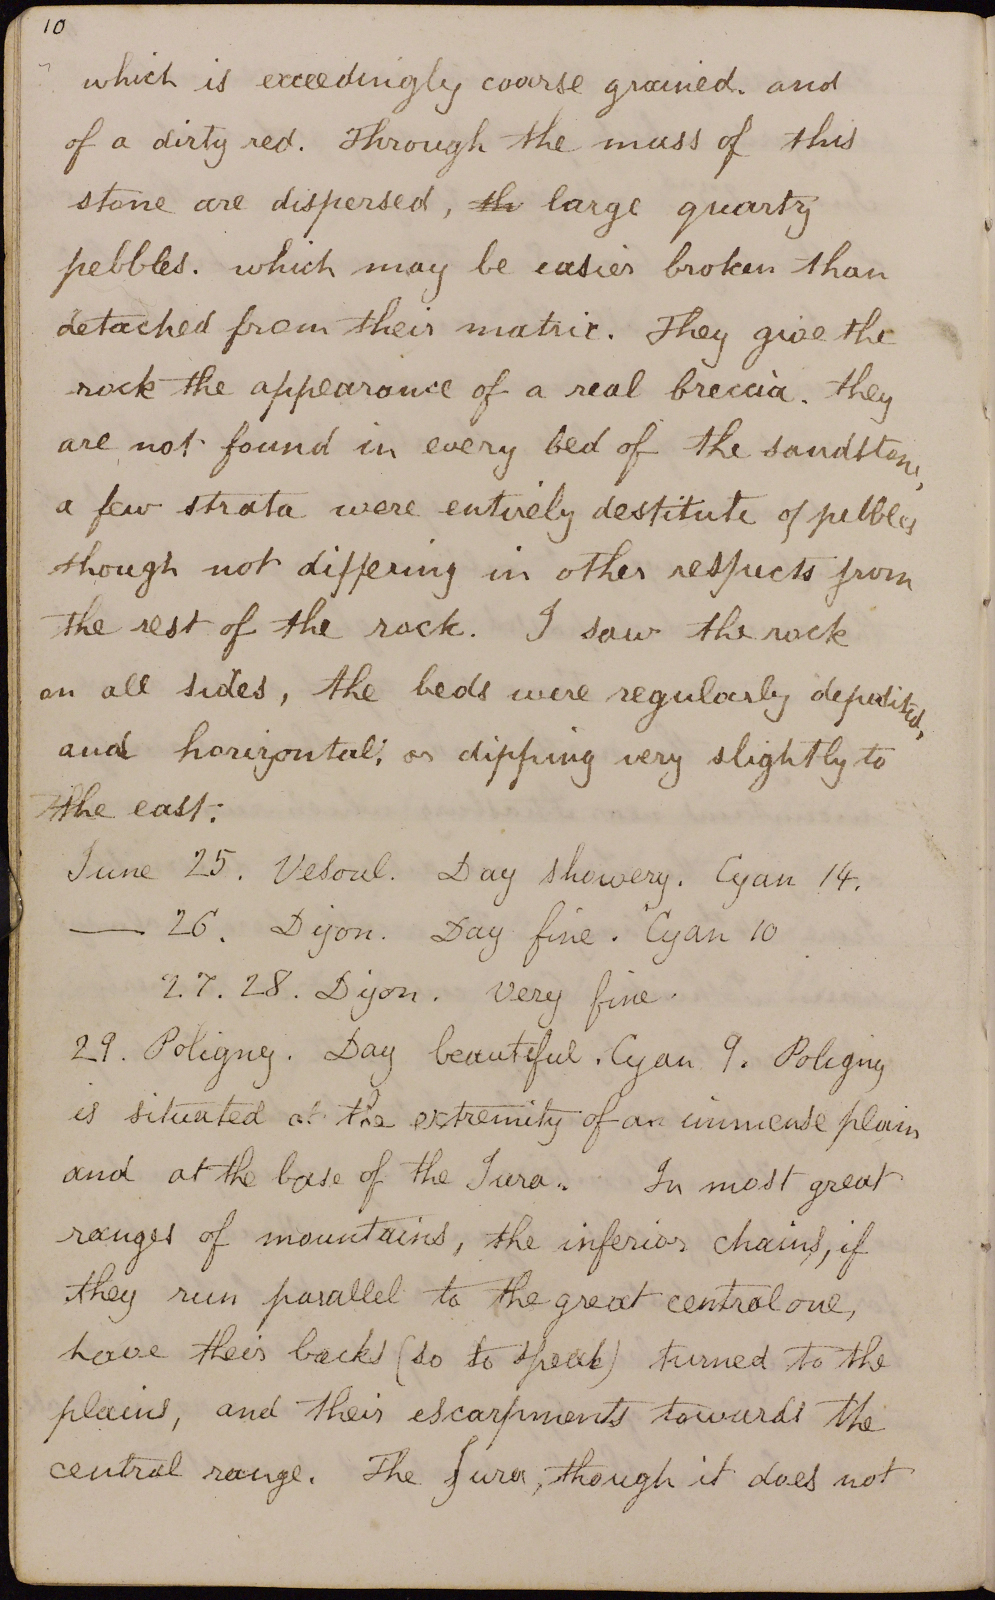 10
which is exceedingly coarse grained. and
of a dirty red. Through the mass of this
stone are dispersed, th large quartz
pebbles. which may be easier broken than
detached from their matrix. They give the
rock the appearance of a real breccia. they
are not found in every bed of the sandstone,
a few strata were entirely destitute of pebbles
though not differing in other respects from
the rest of the rock. I saw the rock
on all sides, the beds were regularly deposited,
and horizontal; or dipping very slightly to
the east.
June 25. Vesoul. Day showery. Cyan 14.
— 26. Dijon. Day fine. Cyan 10
27. 28. Dijon. Very fine.
29. Poligny. Day beautiful. Cyan 9. Poligny
is situated at the extremity of an immense plain
and at the base of the Jura. In most great
ranges of mountains, the inferior chains, if
they run parallel to the great central one,
have their backs (so to speak) turned to the
plains, and their escarpments towards the
central range. The Jura, though it does not